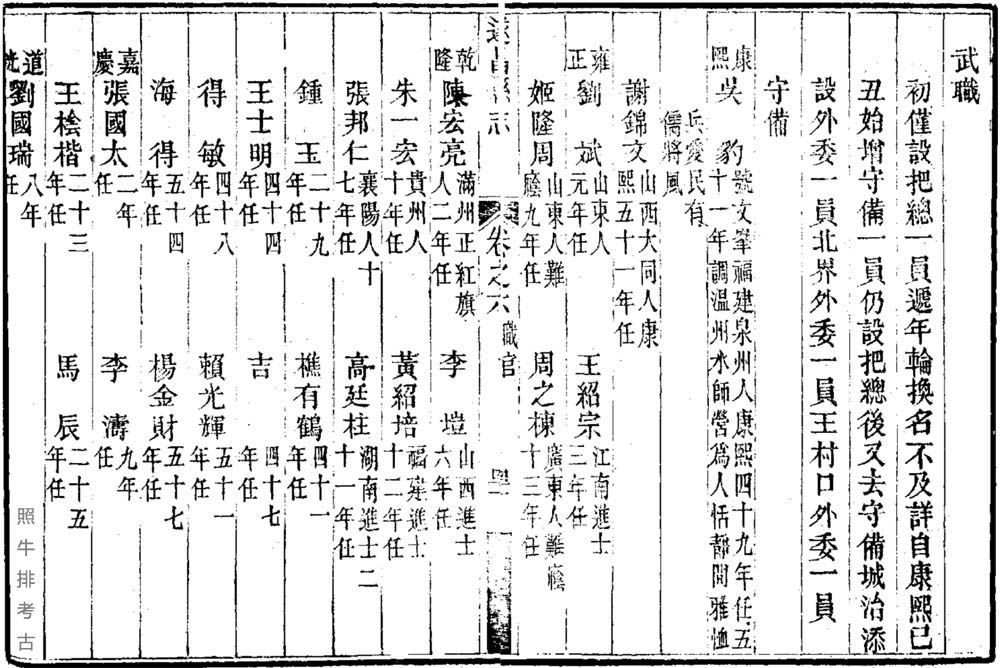 武職
初僅設把總一員遞年輪換名不及詳自康熙己
丑始增守備一員仍設把總後又去守備城治添
設外委一員北界外委一員王村口外委一員
守備
康熙
吳 豹 號文峯福建泉州人康熙四十九年任五
十一年調温州水師營爲人恬靜閒雅恤
兵愛民有
儒將風
謝錦文 山西大同人康
熙五十一年任
雍正
劉 斌 山東人
元年任
王紹宗 江南進士
三年任
姬隆周 山東人難
廕九年任
周之棟 廣東人難廕
十三年任
遂昌縣志 卷之六 職官
乾隆
陳宏亮 滿州正紅旗
人二年任
李 塏 山西進士
六年任
朱一宏 貴州人
十年任
黃紹培 福建進士
十二年任
張邦仁 襄陽人十
七年任
高廷柱 湖南進士二
十一年任
鍾 玉 二十九
年任
樵有鶴 四十一
年任
王士明 四十四
年任
吉 四十七
年任
得 敏 四十八
年任
賴光輝 五十一
年任
海 得 五十四
年任
楊金財 五十七
年任
嘉慶
張國太 二年
任
李 濤 九年
任
王桧楷 二十三
年任
馬 辰 二十五
年任
道光
劉國瑞 八年
任
照牛排考古